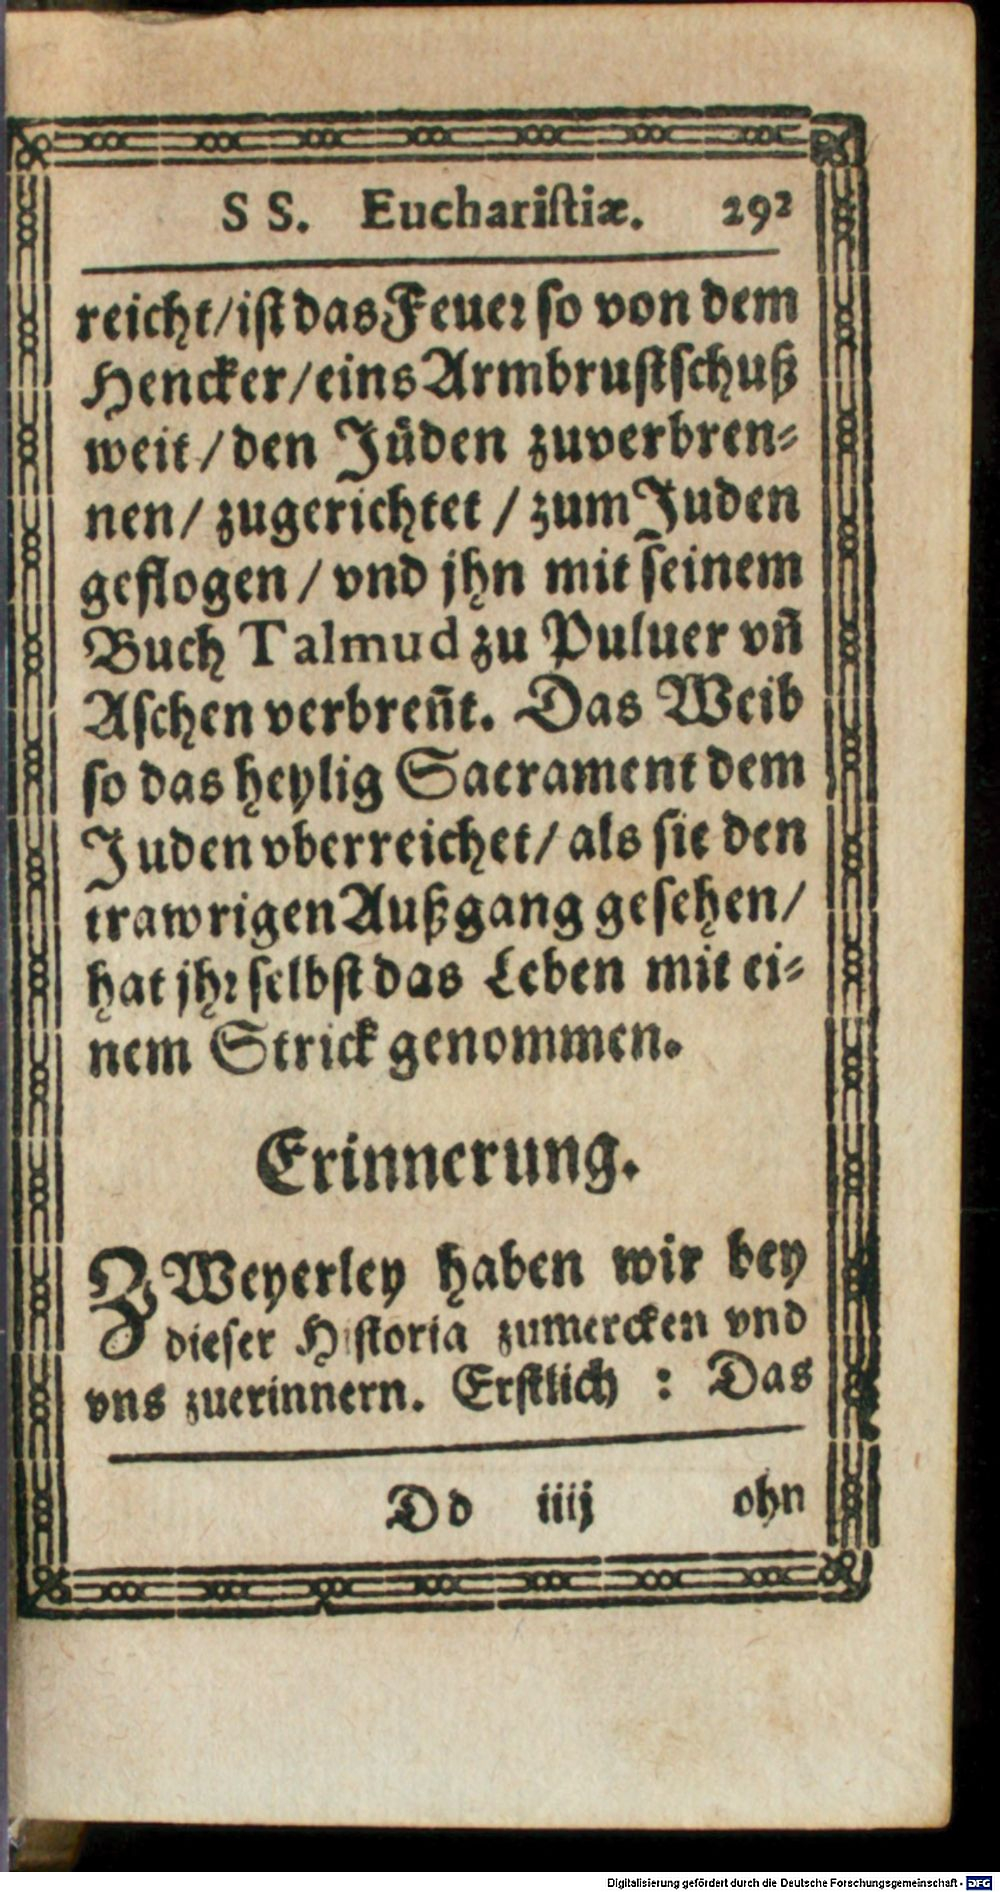 SS. Euchariſtiæ. 292
reicht/iſt das Feuer ſo von dem
Hencker/eins Armbruſtſchuß
weit/den Jüden zuverbren⸗
nen/zugerichtet/zum Juden
geflogen/vnd jhn mit ſeinem
Buch Talmud zu Puluer vn̄
Aſchen verbren̄t. Das Weib
ſo das heylig Sacrament dem
Juden vberreichet/als ſie den
trawrigen Außgang geſehen/
hat jhr ſelbſt das Leben mit ei⸗
nem Strick genommen.
Erinnerung.
ZWeyerley haben wir bey
dieſer Hiſtoria zumercken vnd
vns zuerinnern. Erſtlich : Das
Dd iiij ohn
Digitalisierung gefördert durch die Deutsche Forschungsgemeinschaft - DFG